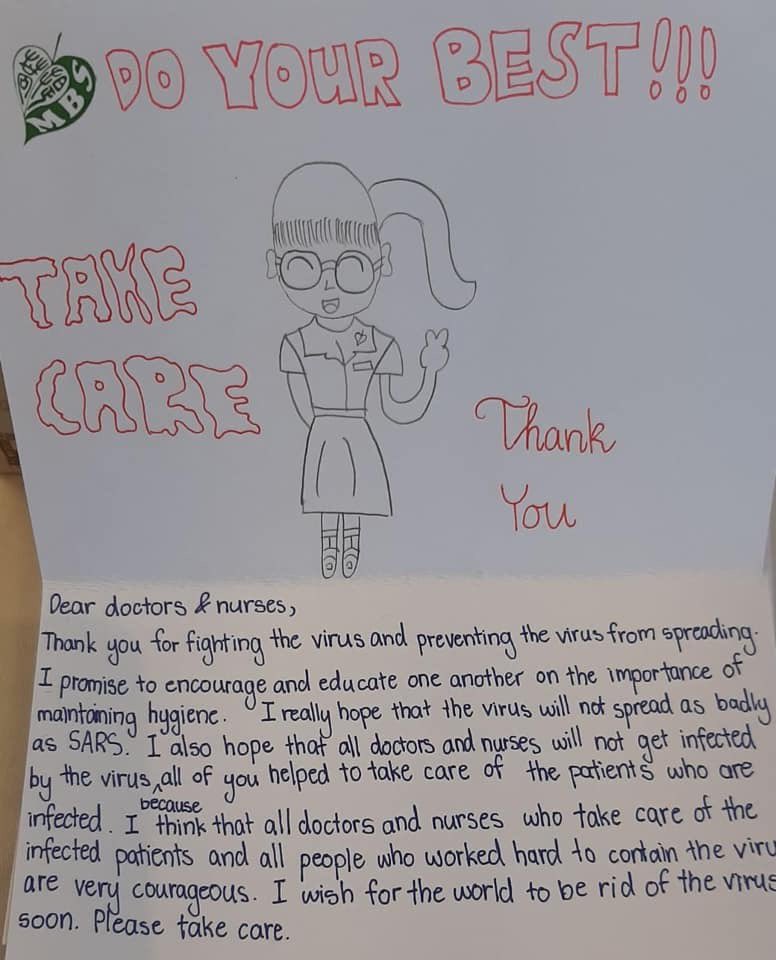 MBS
DO YOUR BEST!!!
TAKE
CARE
Thank
You
Dear doctors & nurses,
Thank you for fighting the virus and preventing the virus from spreading.
I promise to encourage and educate one another on the importance of
maintaining hygiene. I really hope that the virus will not spread as badly
as SARS. I also hope that all doctors and nurses will not get infected
by the virus, ^ all of you helped to take care of the patients who are
because
infected. I think that all doctors and nurses who take care of the
infected patients and all people who worked hard to contain the viru
are very courageous. I wish for the world to be rid of the virus
soon. Please take care.